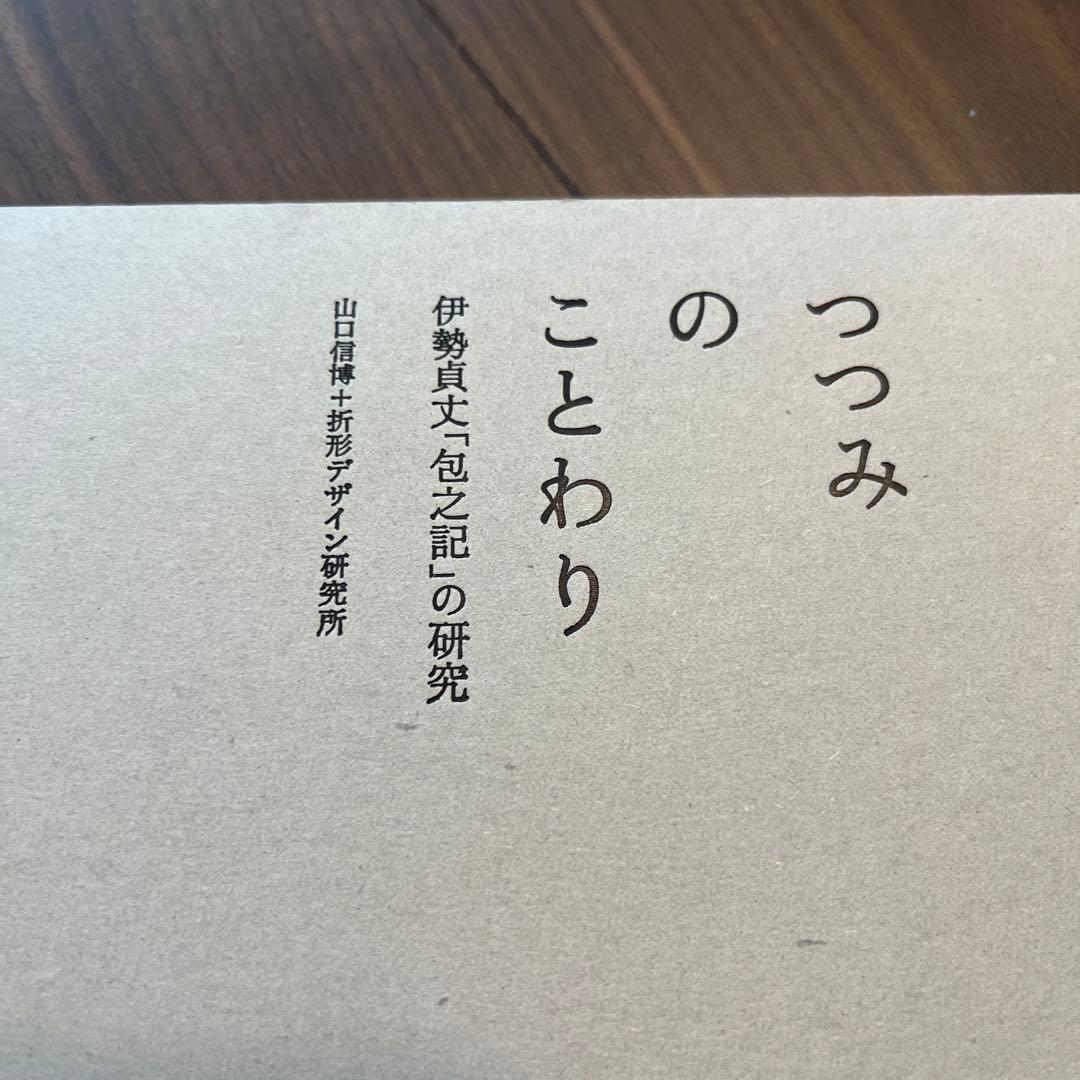 つつみ
の
ことわり
伊勢貞丈「包之記」の研究
山口信博＋折形デザイン研究所